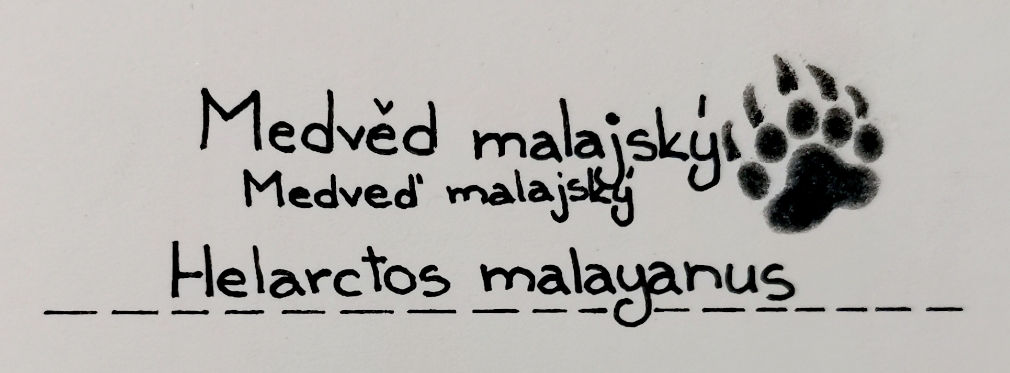 Medvěd malajský
Medveď malajský
Helarctos malayanus